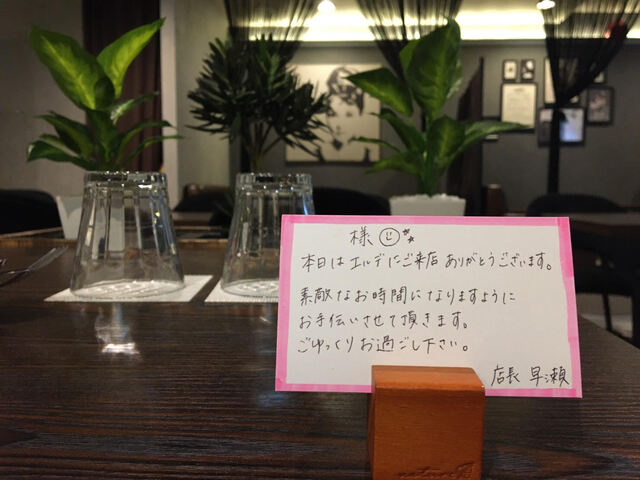 様
本日はエルデにご来店ありがとうございます。
素敵なお時間になりますように
お手伝いさせて頂きます。
ごゆっくりお過ごし下さい。
店長 早瀬